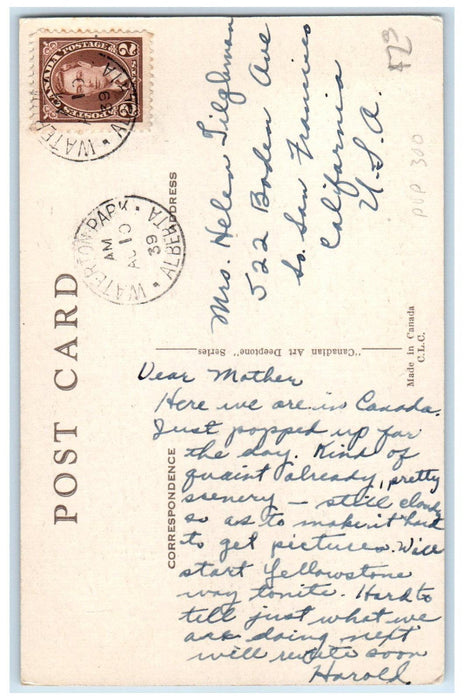 CANADA POSTES POSTAGE
2 2
WATERTON PARK
AM
AU 10
39
ALBERTA
POST CARD
ADDRESS
Mrs. Helen Tilghman
522 Baden Ave
So. San Francisco
California
U.S.A.
PVP 300
"Canadian Art Deeptone" Series
Made in Canada
C.L.C.
CORRESPONDENCE
Dear Mother
Here we are in Canada.
Just popped up for
the day. Kind of
quaint already, pretty
scenery — still cloudy
so as to make it hard
to get pictures. Will
start Yellowstone
way tonite. Hard to
till just what we
are doing next
will write soon
Harold.